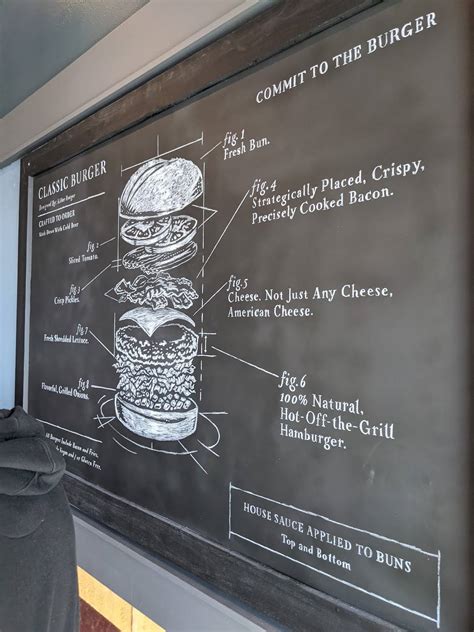 COMMIT TO THE BURGER
CLASSIC BURGER
CRAFTED TO ORDER
fig. 1
Fresh Bun.
fig. 2
Sliced Tomato.
fig. 3
Crisp Pickles.
fig. 4
Strategically Placed, Crispy,
Precisely Cooked Bacon.
fig. 5
Cheese. Not Just Any Cheese,
American Cheese.
fig. 6
100% Natural,
Hot-Off-the-Grill
Hamburger.
fig. 7
Fresh Shredded Lettuce.
fig. 8
Flavorful, Grilled Onions.
All Burgers Include Bacon and Fries.
Vegan and / or Gluten Free.
HOUSE SAUCE APPLIED TO BUNS
Top and Bottom